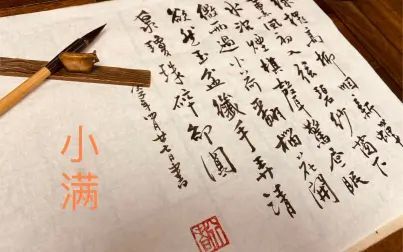 綠槐高柳咽新蟬
薰風初入弦碧紗窗下
水沈煙棋聲驚晝眠
微雨過小荷翻榴花開
欲然玉盆纖手弄清
泉瓊珠碎卻圓
年四月廿七日書
小满